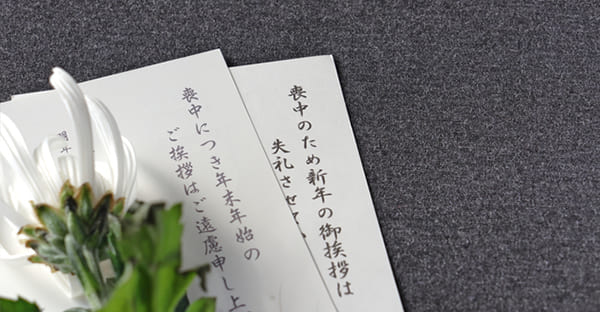 喪中のため新年の御挨拶は
失礼させて
喪中につき年末年始の
ご挨拶はご遠慮申し上